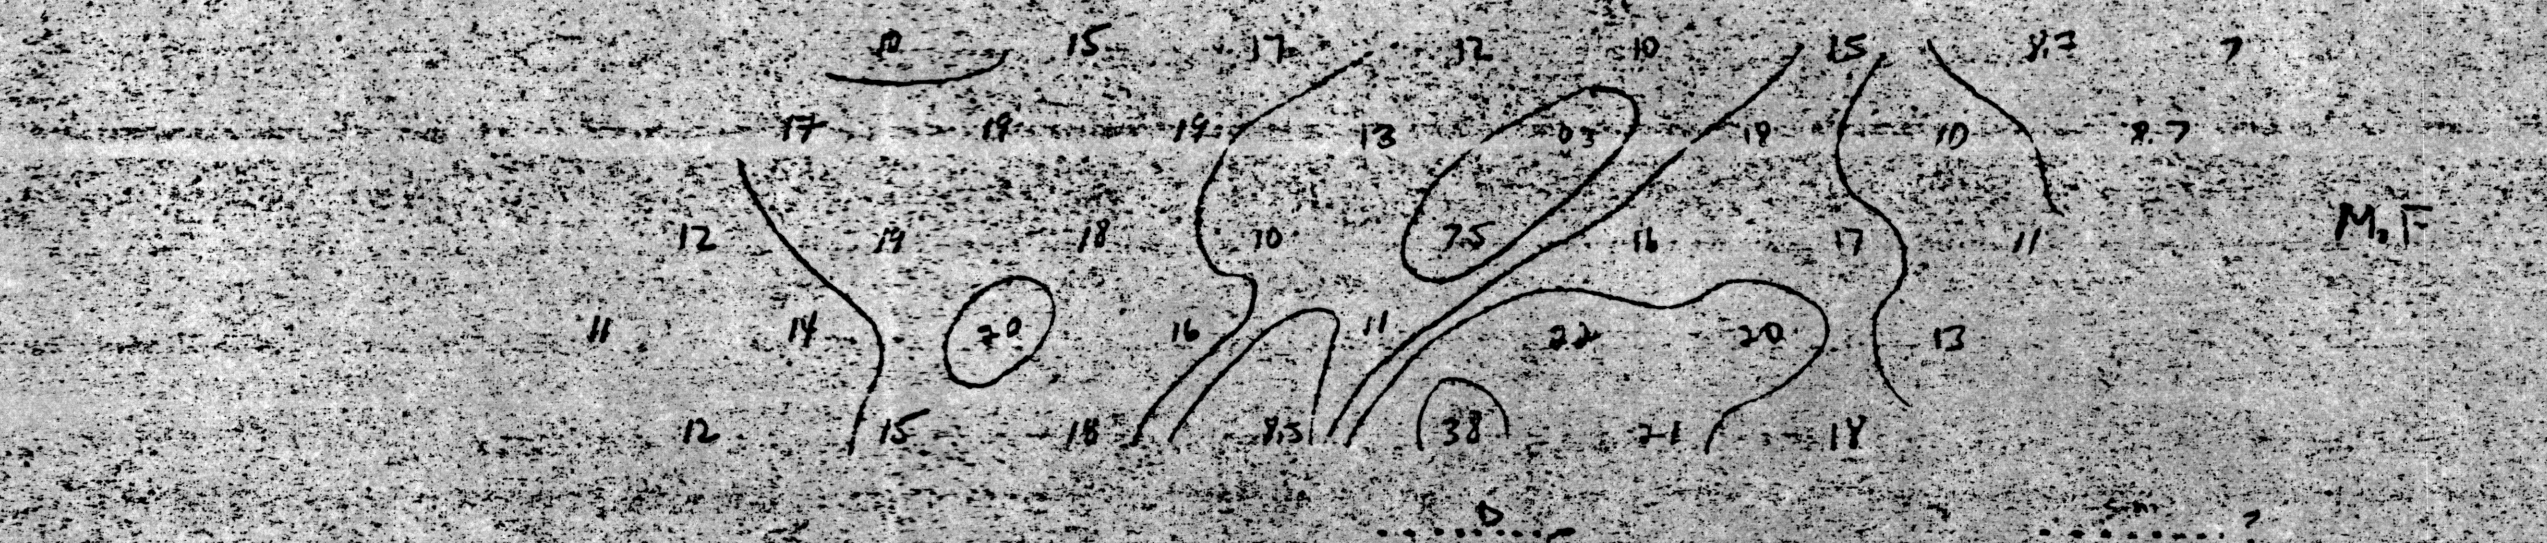 10 15 17 12 10 15 8.7 7
17 19 19 13 18 10 8.7
12 19 18 10 75 16 17 11 M.F
11 14 20 16 11 22 20 13
12 15 18 8.5 38 21 18
D